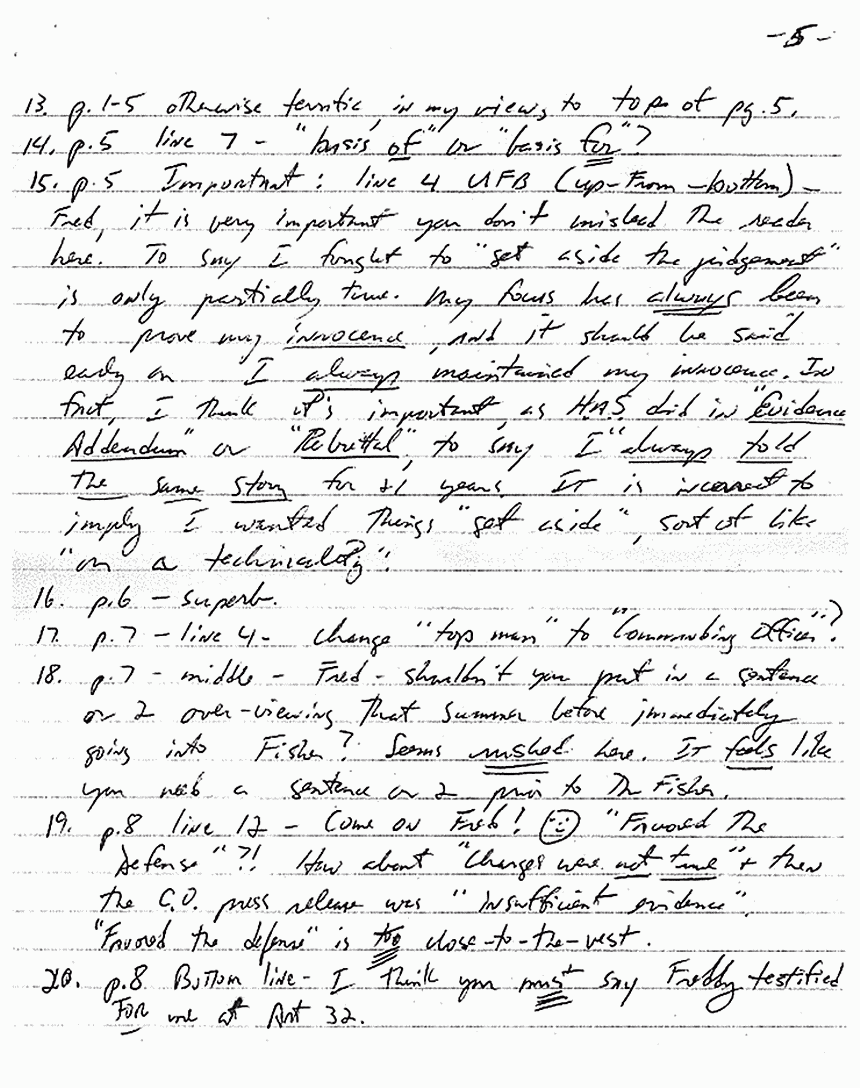 -5-
13. p. 1-5 otherwise terrific, in my view, to top of pg. 5.
14. p.5 line 7 - "basis of" or "basis for"?
15. p.5 Important: line 4 UFB (up-From-bottom) -
Fred, it is very important you don't mislead the reader
here. To say I fought to "set aside the judgement"
is only partially true. My focus has always been
to prove my innocence, and it should be said
early on I always maintained my innocence. In
fact, I think it's important, as H.A.S did in "Evidence
Addendum" or "Rebuttal", to say I "always told
the same story for 21 years. It is incorrect to
imply I wanted things "set aside", sort of like
"on a technicality".
16. p.6 - superb.
17. p.7 - line 4 - change "top man" to "Commanding Officer"?
18. p.7 - middle - Fred - shouldn't you put in a sentence
or 2 over-viewing that summer before immediately
going into Fisher? Seems rushed here. It feels like
you need a sentence or 2 prior to the Fisher.
19. p.8 line 12 - Come on Fred! "Favored the
defense"?! How about "Charges were not true" + then
the C.O. press release was "insufficient evidence".
"Favored the defense" is too close-to-the-vest.
20. p.8 Bottom line - I think you must say Freddy testified
FOR me at Art 32.